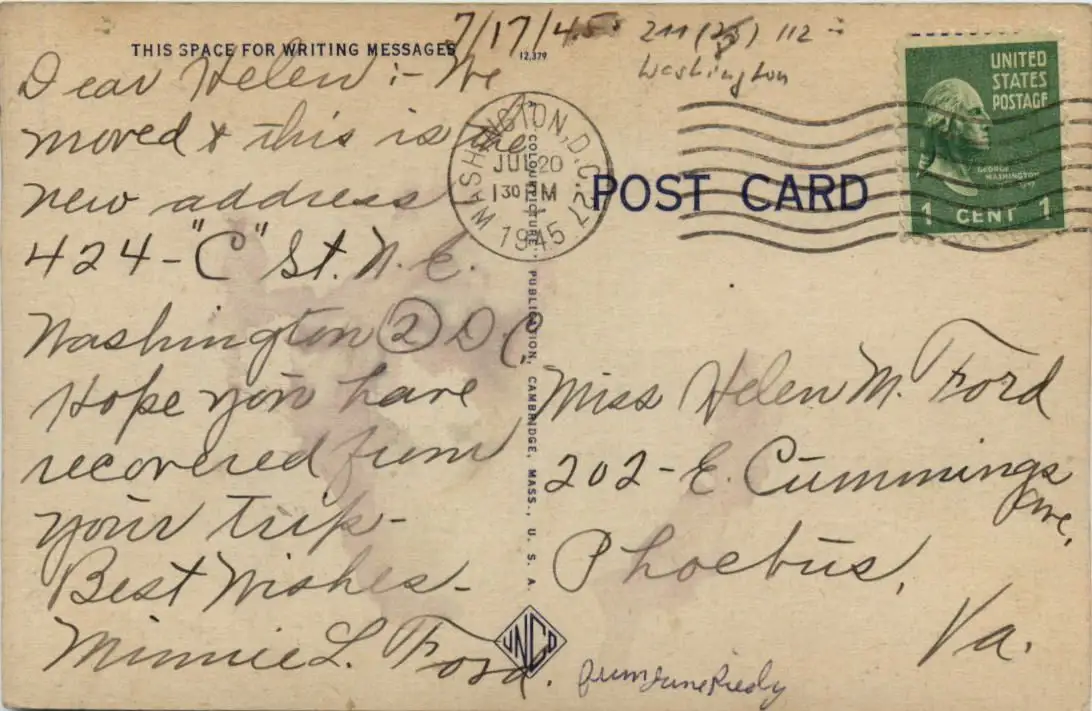 THIS SPACE FOR WRITING MESSAGES
7/17/45
12,379
Dear Helen :- We
moved & this is the
new address
424-"C" St. N. E.
Washington ② D.C.
Hope you have
recovered from
your trip-
Best Wishes-
Minnie L. Ford.
211 (25) 112
Washington
WASHINGTON, D.C. 27
JUL 20
1 30 PM
1945
POST CARD
UNITED
STATES
POSTAGE
GEORGE
WASHINGTON
1 CENT 1
"COLOURPICTURE" PUBLICATION, CAMBRIDGE, MASS., U. S. A.
Miss Helen M. Ford
202-E. Cummings
Ave,
Phoebus,
Va.